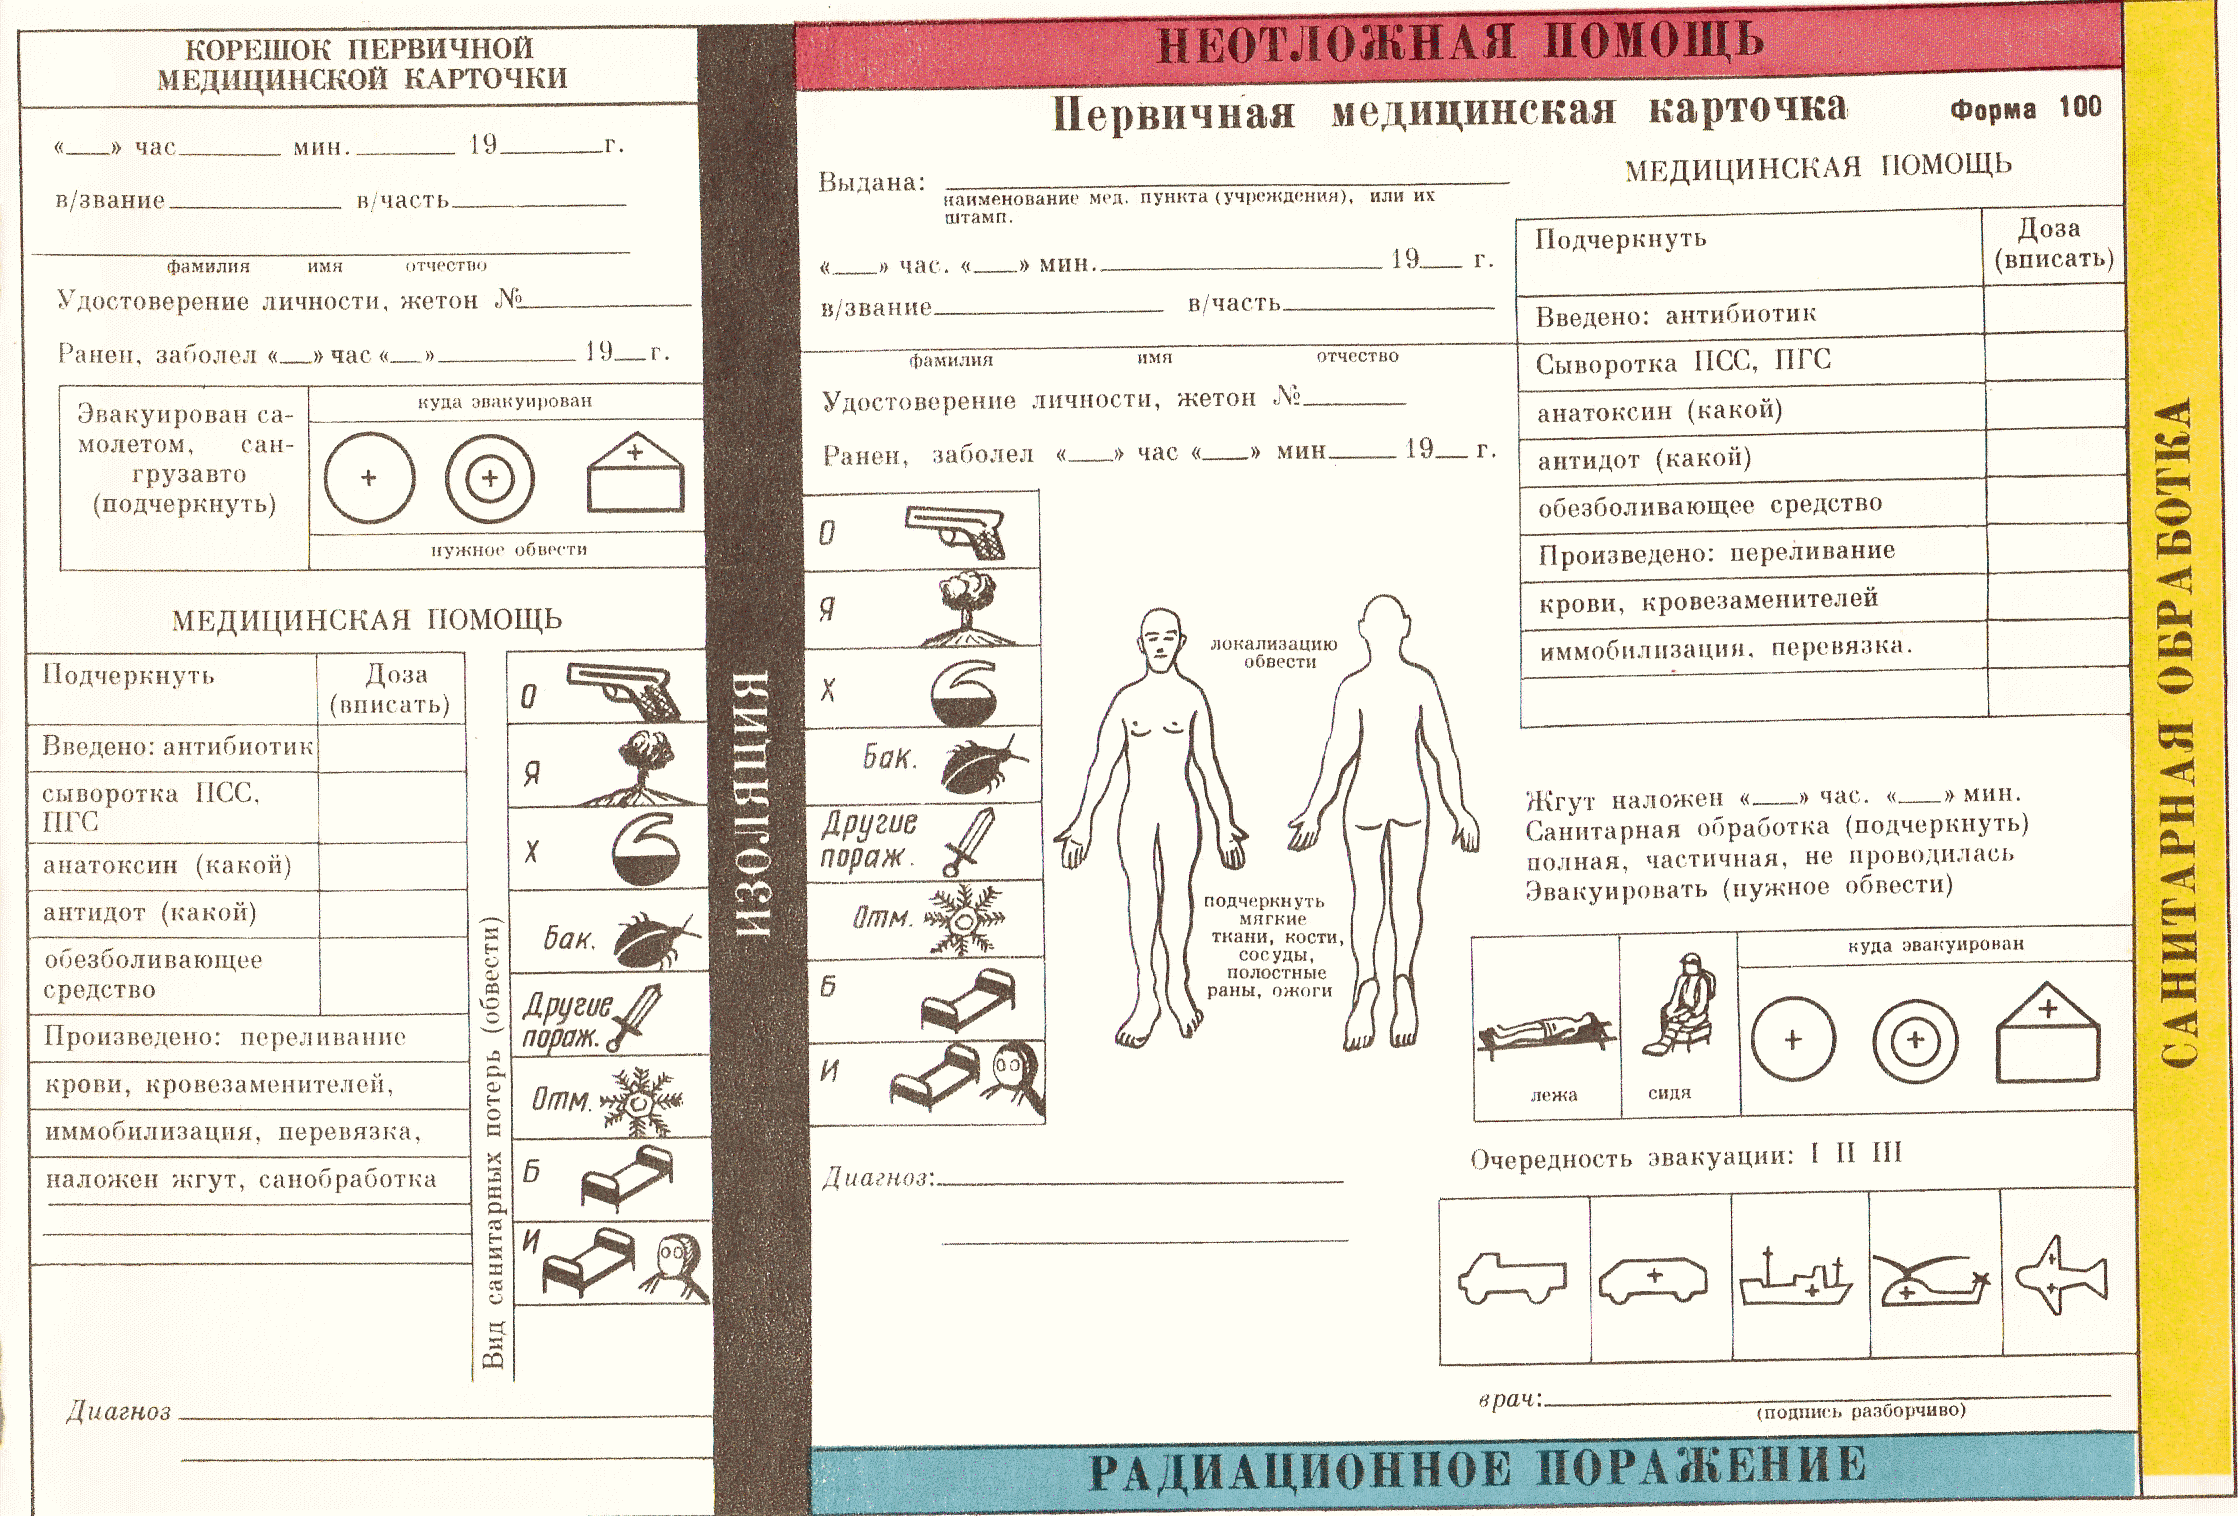 КОРЕШОК ПЕРВИЧНОЙ
МЕДИЦИНСКОЙ КАРТОЧКИ
«___» час______ мин.______ 19______г.
в/звание________ в/часть________
фамилия имя отчество
Удостоверение личности, жетон №________
Ранен, заболел «__» час «__»________ 19__г.
Эвакуирован са-
молетом, сан-
грузавто
(подчеркнуть)
куда эвакуирован
нужное обвести
МЕДИЦИНСКАЯ ПОМОЩЬ
Подчеркнуть
Доза
(вписать)
Введено: антибиотик
сыворотка ПСС,
ПГС
анатоксин (какой)
антидот (какой)
обезболивающее
средство
Произведено: переливание
крови, кровезаменителей,
иммобилизация, перевязка,
наложен жгут, санобработка
Вид санитарных потерь (обвести)
О
Я
Х
Бак.
Другие
пораж.
Отм.
Б
И
Диагноз
ИЗОЛЯЦИЯ
НЕОТЛОЖНАЯ ПОМОЩЬ
Первичная медицинская карточка Форма 100
Выдана:
наименование мед. пункта (учреждения), или их
штамп.
«___» час. «___» мин.____________ 19___ г.
в/звание____________ в/часть____________
фамилия имя отчество
Удостоверение личности, жетон №______
Ранен, заболел «___» час «___» мин____ 19__ г.
О
Я
Х
Бак.
Другие
пораж.
Отм.
Б
И
локализацию
обвести
подчеркнуть
мягкие
ткани, кости,
сосуды,
полостные
раны, ожоги
Диагноз:
МЕДИЦИНСКАЯ ПОМОЩЬ
Подчеркнуть
Доза
(вписать)
Введено: антибиотик
Сыворотка ПСС, ПГС
анатоксин (какой)
антидот (какой)
обезболивающее средство
Произведено: переливание
крови, кровезаменителей
иммобилизация, перевязка.
Жгут наложен «___» час. «___» мин.
Санитарная обработка (подчеркнуть)
полная, частичная, не проводилась
Эвакуировать (нужное обвести)
лежа
сидя
куда эвакуирован
Очередность эвакуации: I II III
врач:
(подпись разборчиво)
РАДИАЦИОННОЕ ПОРАЖЕНИЕ
САНИТАРНАЯ ОБРАБОТКА